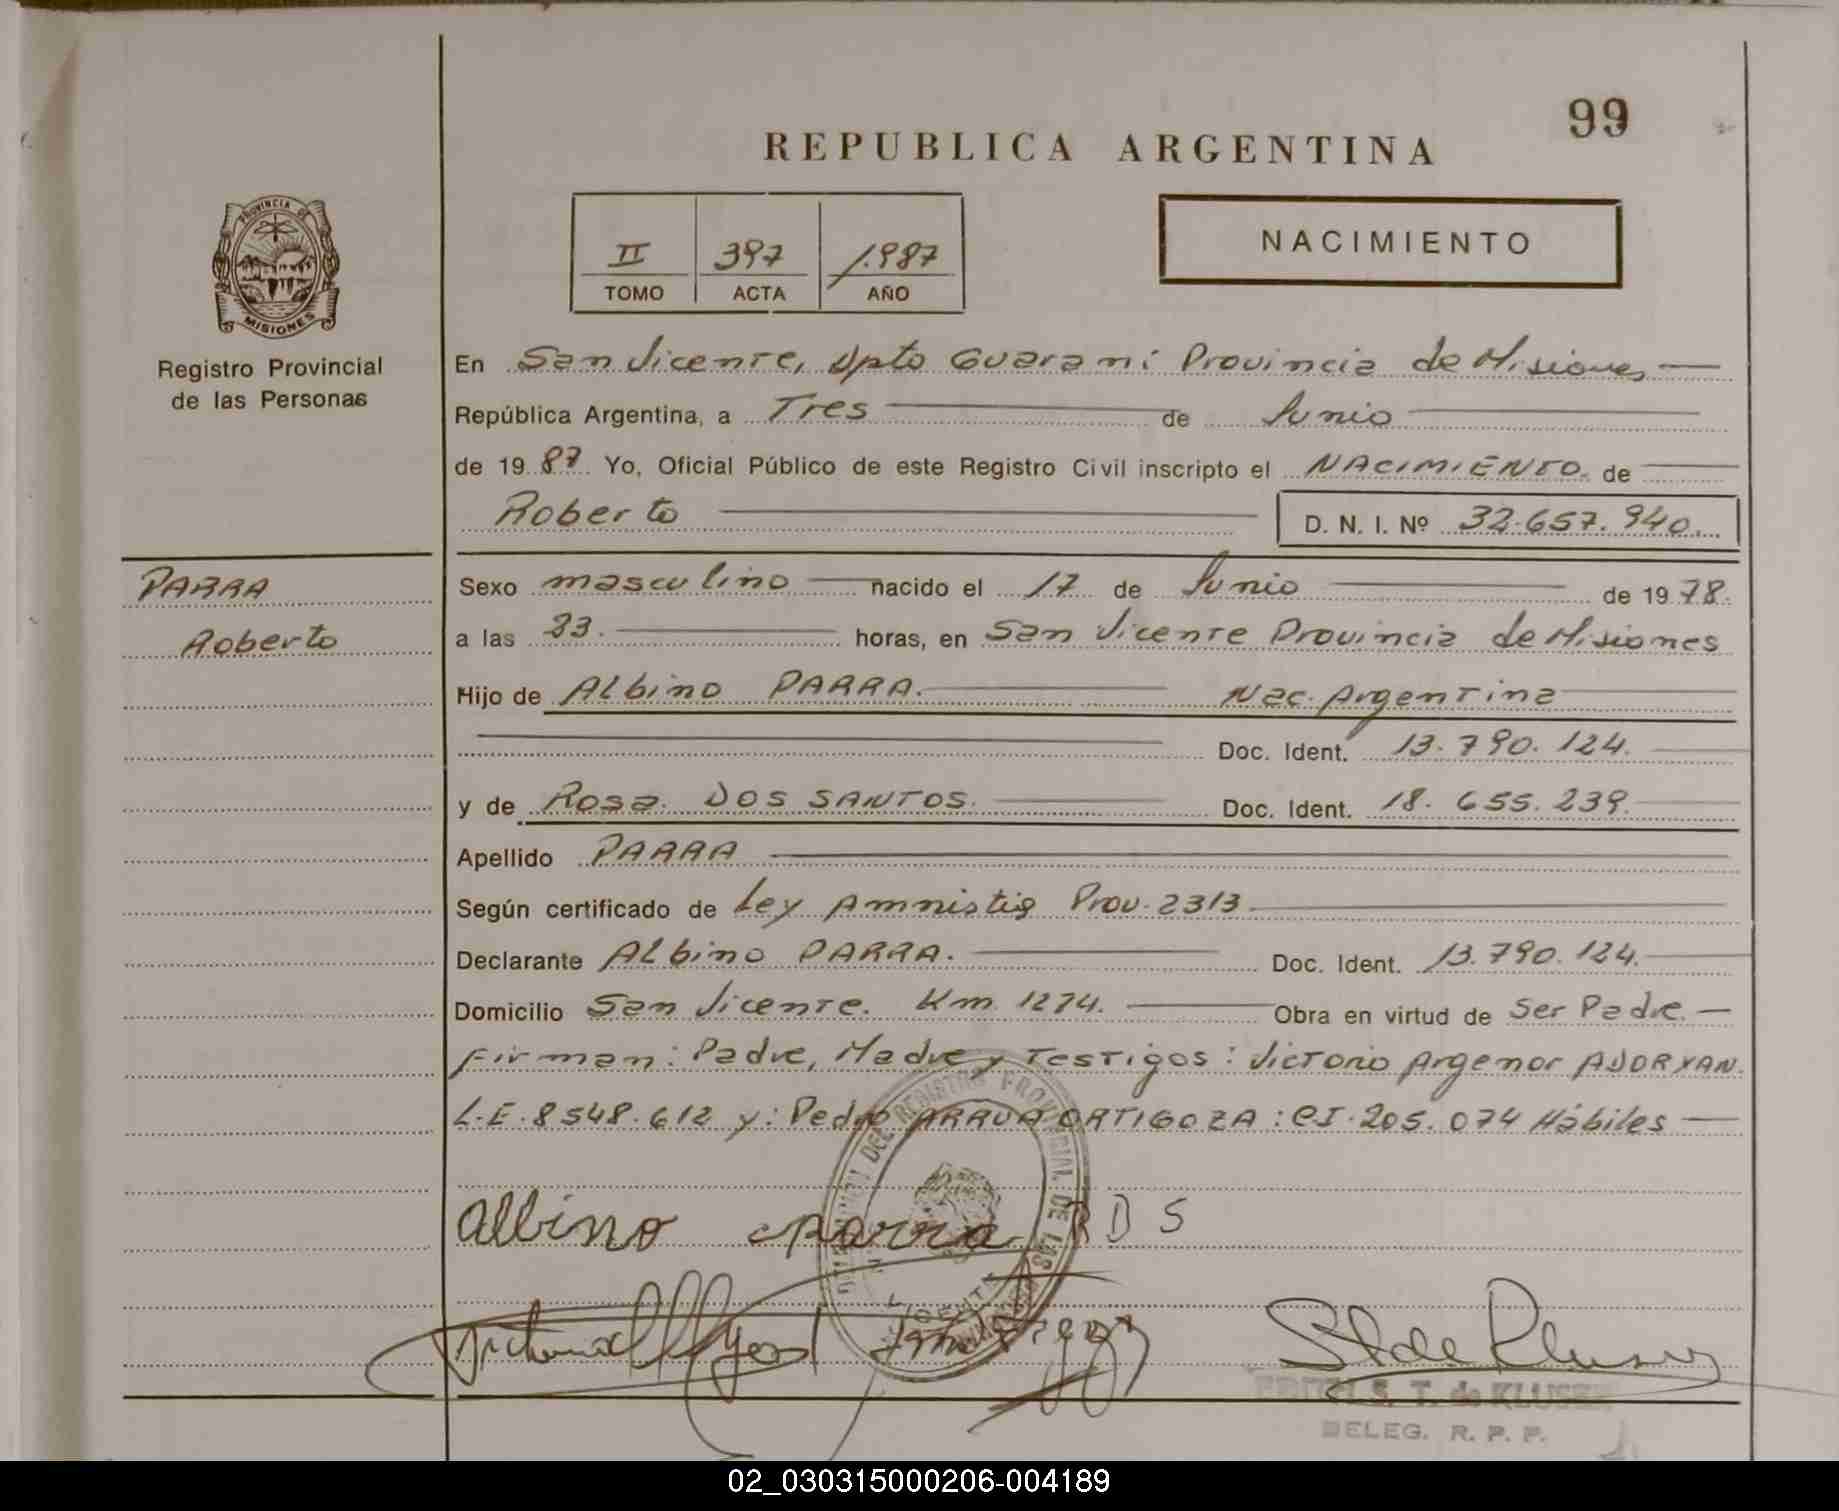 99
REPUBLICA ARGENTINA
II 397 1.987
TOMO ACTA AÑO
NACIMIENTO
PROVINCIA DE
MISIONES
Registro Provincial
de las Personas
En San Vicente, Dpto Guarani Provincia de Misiones
República Argentina, a Tres de Junio
de 19 87 Yo, Oficial Público de este Registro Civil inscripto el NACIMIENTO de
Roberto D. N. I. Nº 32.657.940.
PARRA
Roberto
Sexo masculino nacido el 17 de Junio de 19 78.
a las 23. horas, en San Vicente Provincia de Misiones
Hijo de Albino PARRA. Nac. Argentina
Doc. Ident. 13.790.124.
y de Rosa DOS SANTOS. Doc. Ident. 18.655.239.
Apellido PARRA
Según certificado de Ley Amnistia Prov. 2313
Declarante Albino PARRA. Doc. Ident. 13.790.124.
Domicilio San Vicente. Km. 1274. Obra en virtud de Ser Padre.
Firman: Padre, Madre y Testigos: Victorio Argenor ADORYAN.
L.E. 8548.612 y: Pedro ARRUA ORTIGOZA: CI. 205.074 Hábiles
Albino Parra R D S
T. de KLUSER
DELEG. R. P. P.
02_030315000206-004189